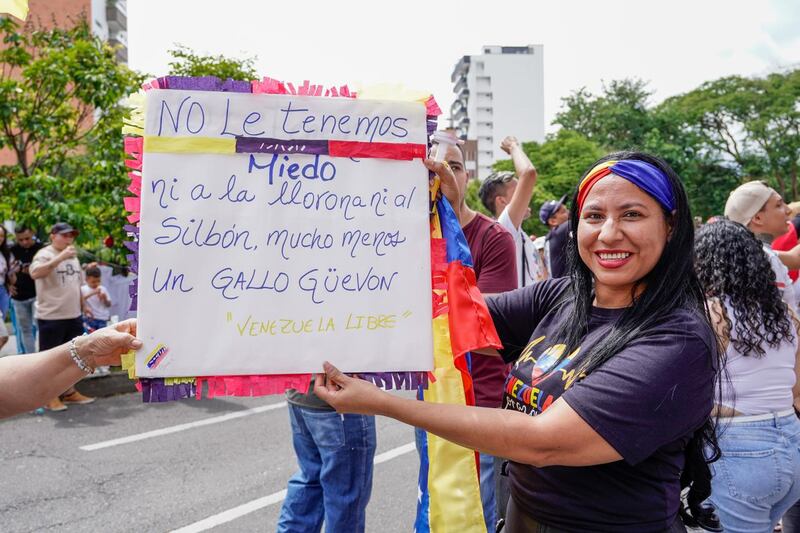 NO Le tenemos
Miedo
ni a la llorona ni al
Silbón, mucho menos
un GALLO GÜEVON
"VENEZUELA LIBRE"
VENEZUELA